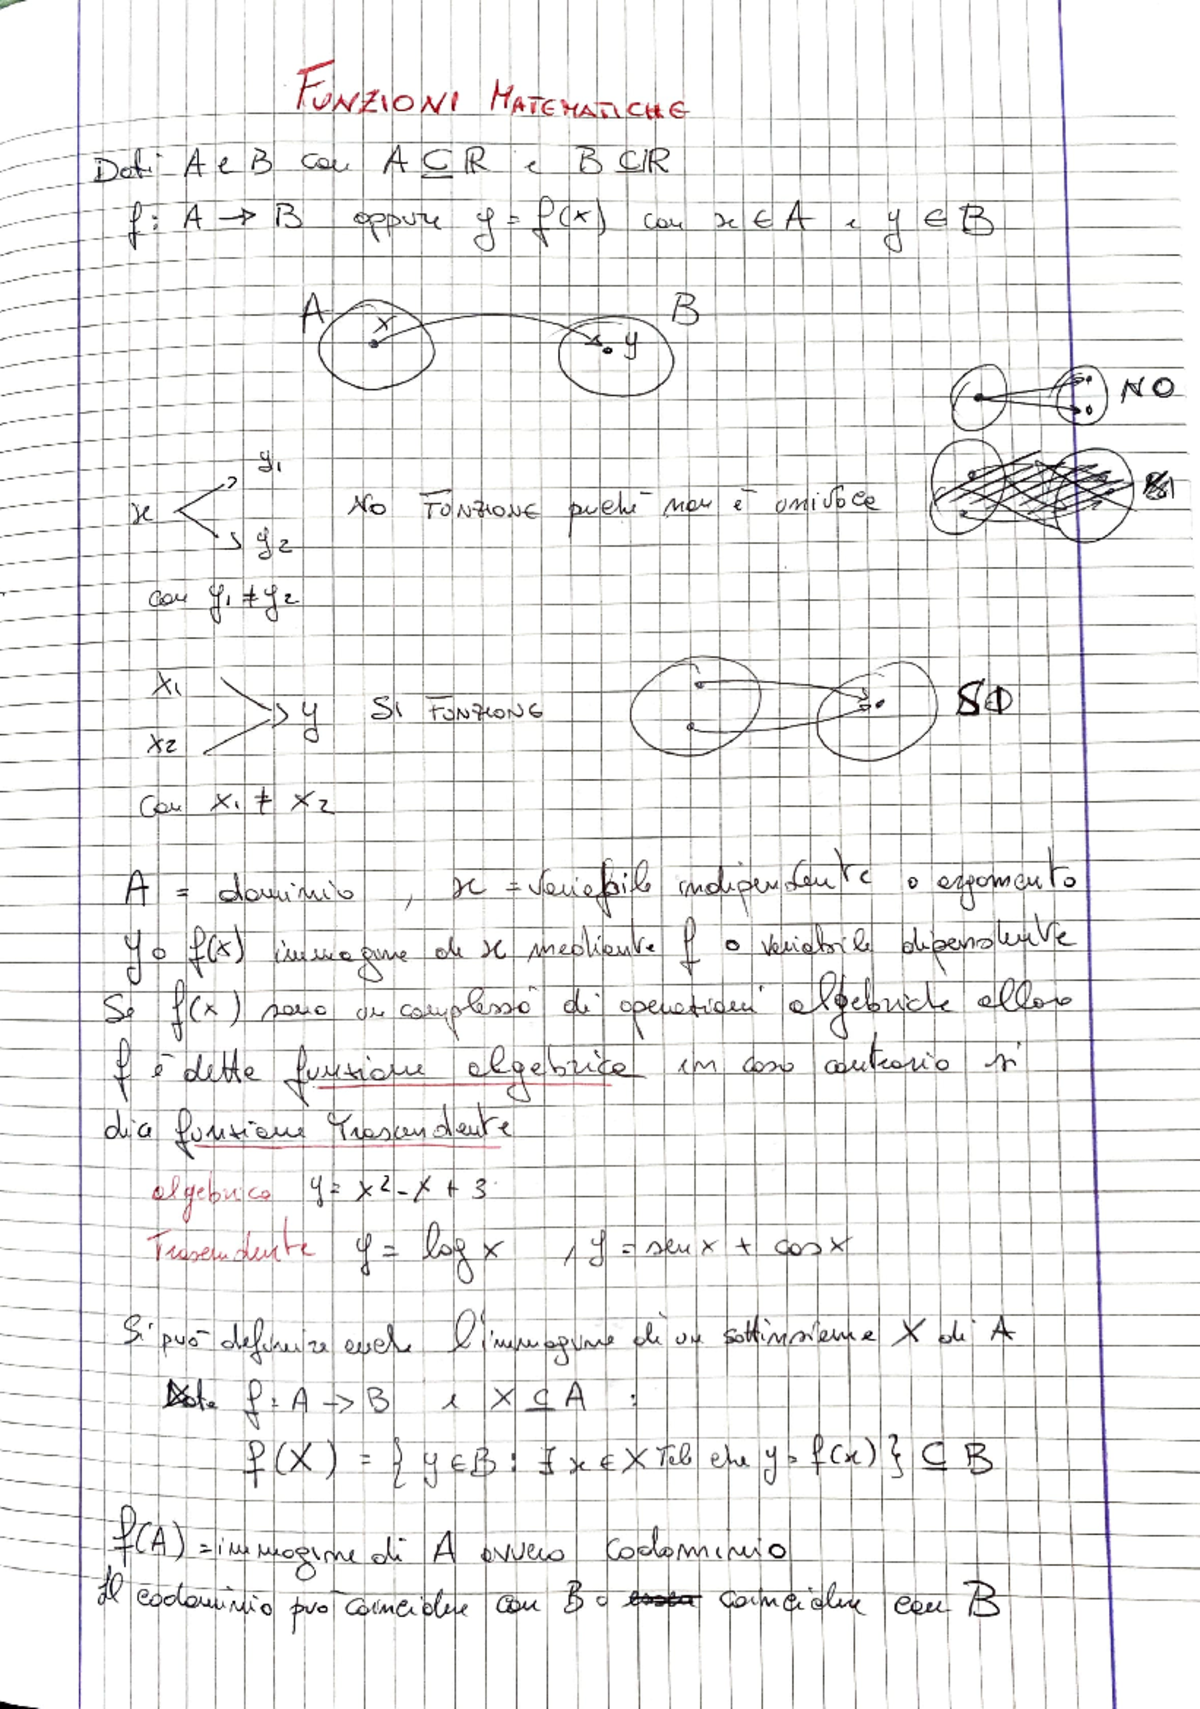 FUNZIONI MATEMATICHE
Dati A e B con A ⊆ R e B ⊆ R
f: A → B oppure y = f(x) con x ∈ A e y ∈ B
A x y B
NO
y1
x NO FUNZIONE perché non è univoca
y2
con y1 ≠ y2
x1
y SI FUNZIONE SI
x2
con x1 ≠ x2
A = dominio, x = variabile indipendente o argomento
y o f(x) immagine di x mediante f o variabile dipendente
Se f(x) sono un complesso di operazioni algebriche allora
f è detta funzione algebrica in caso contrario si
dice funzione trascendente
algebrica y = x² - x + 3
Trascendente y = log x , y = sen x + cos x
Si può definire anche l'immagine di un sottinsieme X di A
f: A → B e X ⊆ A :
f(X) = { y ∈ B : ∃ x ∈ X Tal che y = f(x) } ⊆ B
f(A) = immagine di A ovvero codominio
Il codominio può coincidere con B o coincidere con B